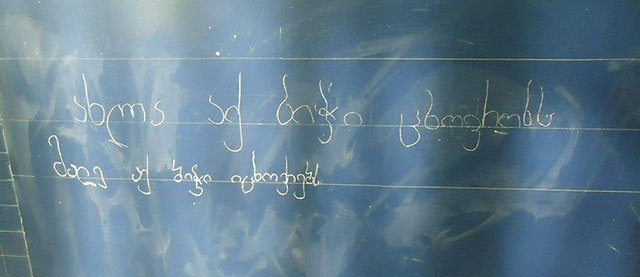 ახლა აქ ბიჭი ცხოვრობს
მალე აქ ბიჭი იცხოვრებს